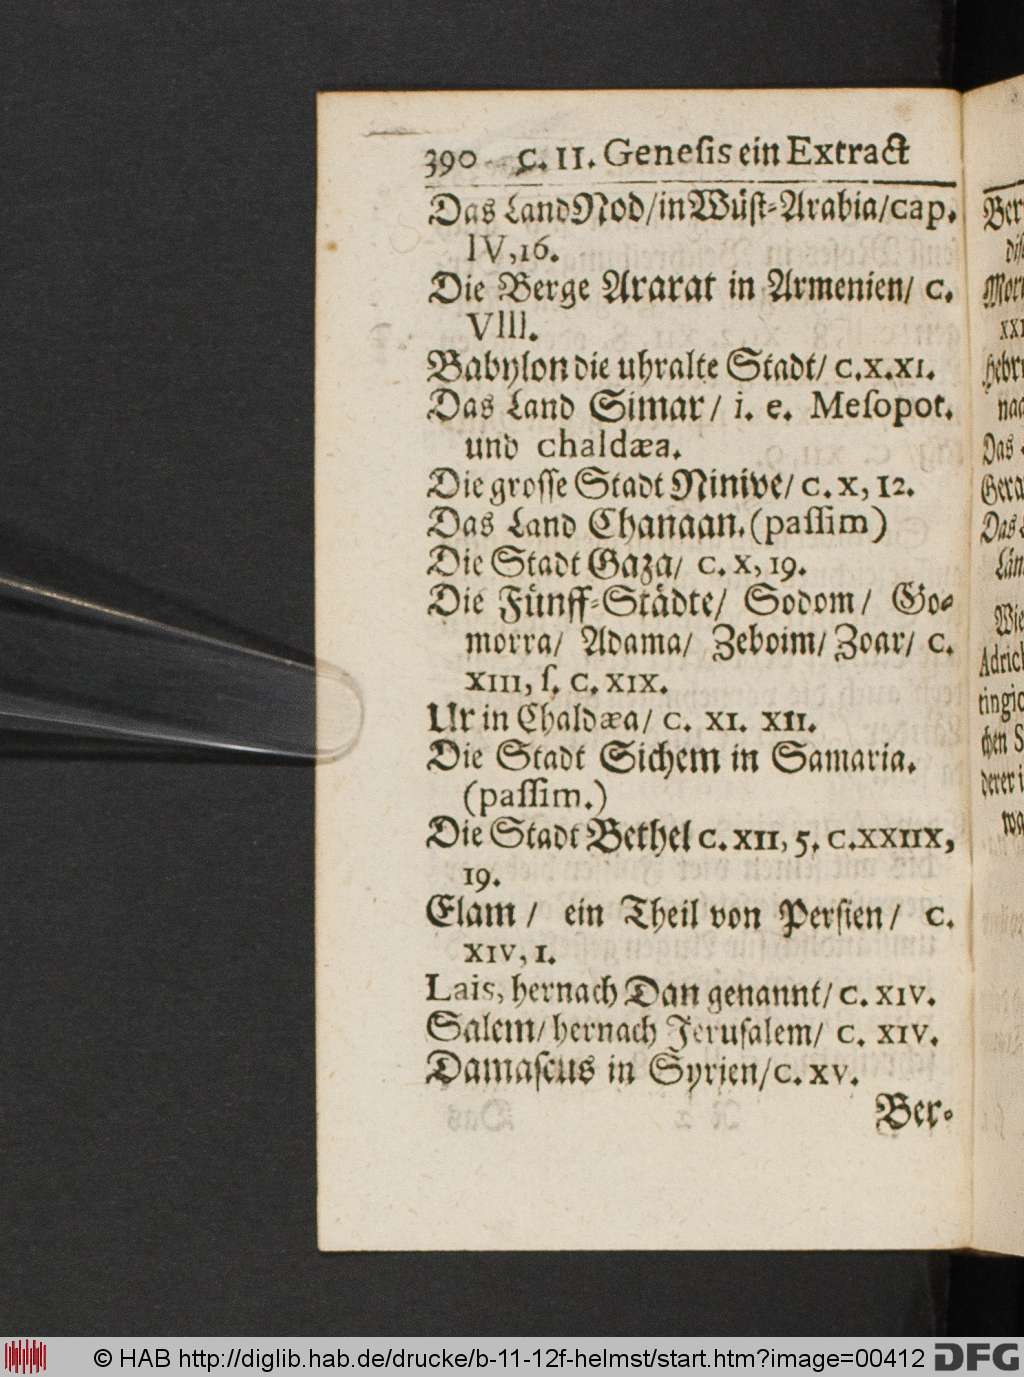 390 C. II. Geneſis ein Extract
Das Land Nod/ in Wüſt-Arabia/ cap.
IV, 16.
Die Berge Ararat in Armenien/ c.
VIII.
Babylon die uhralte Stadt/ c. x. xI.
Das Land Simar/ i. e. Meſopot.
und chaldæa.
Die groſſe Stadt Ninive/ c. x, 12.
Das Land Chanaan. (paſſim)
Die Stadt Gaza/ c. x, 19.
Die Fünff-Städte/ Sodom/ Go-
morra/ Adama/ Zeboim/ Zoar/ c.
XIII, ſ. c. XIX.
Ur in Chaldæa/ c. XI. XII.
Die Stadt Sichem in Samaria.
(paſſim.)
Die Stadt Bethel c. XII, 5. c. XXIIX,
19.
Elam/ ein Theil von Perſien/ c.
XIV, 1.
Lais, hernach Dan genannt/ c. XIV.
Salem/ hernach Jeruſalem/ c. XIV.
Damaſcus in Syrien/ c. XV.
Ber-
© HAB http://diglib.hab.de/drucke/b-11-12f-helmst/start.htm?image=00412 DFG